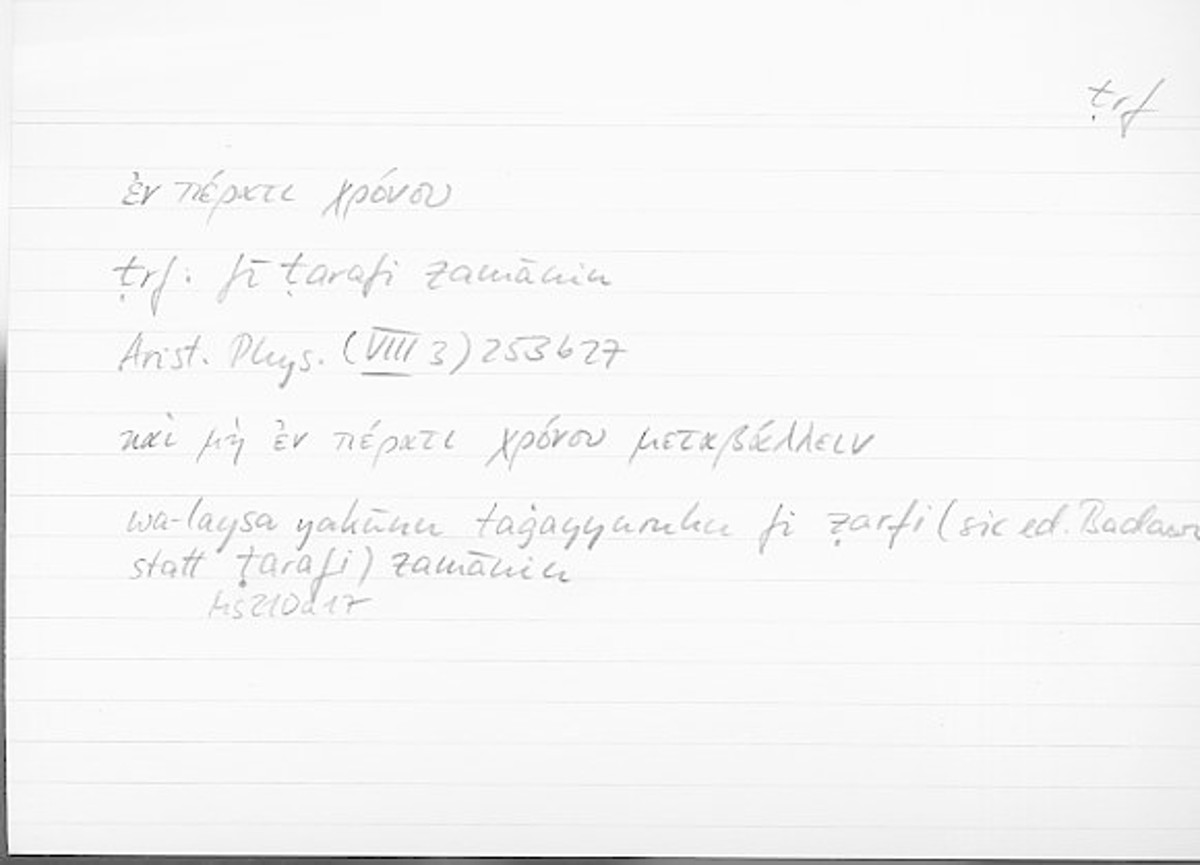 ṭrf
ἐν πέρατι χρόνου
ṭrf: fī ṭarafi zamānin
Arist. Phys. (VIII 3) 253b27
καὶ μὴ ἐν πέρατι χρόνου μεταβάλλειν
wa-laysa yakūnu taġayyuruhu fī ẓarfi (sic ed. Badawī
statt ṭarafi) zamānin
Hs 210a17